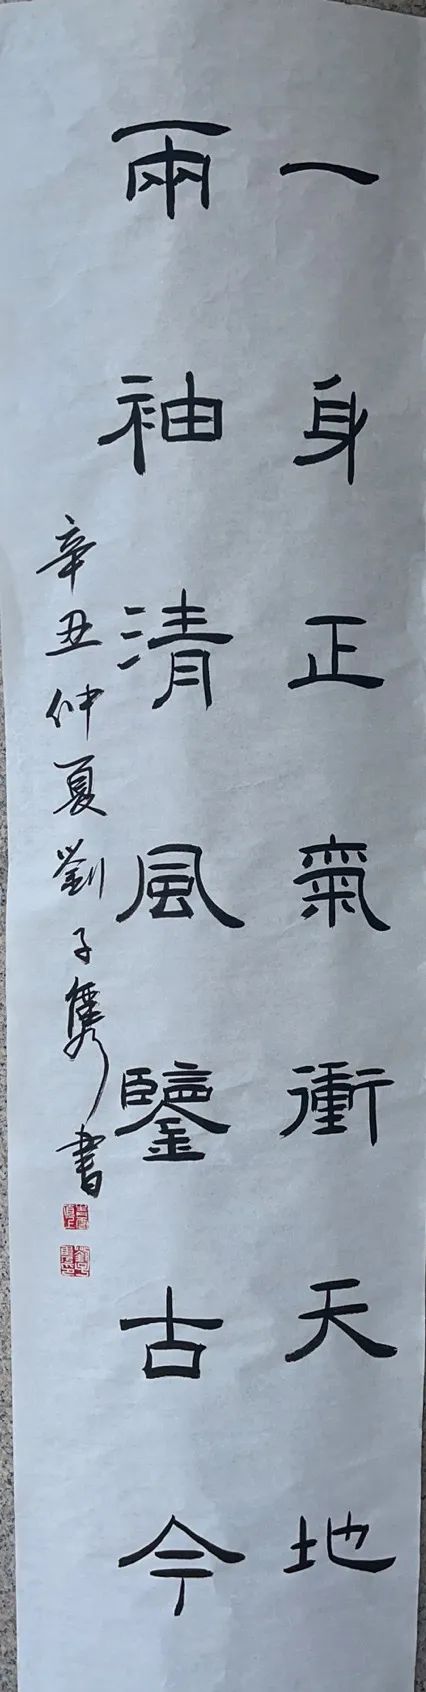 一身正氣衝天地
兩袖清風鑒古今
辛丑仲夏劉子儁書